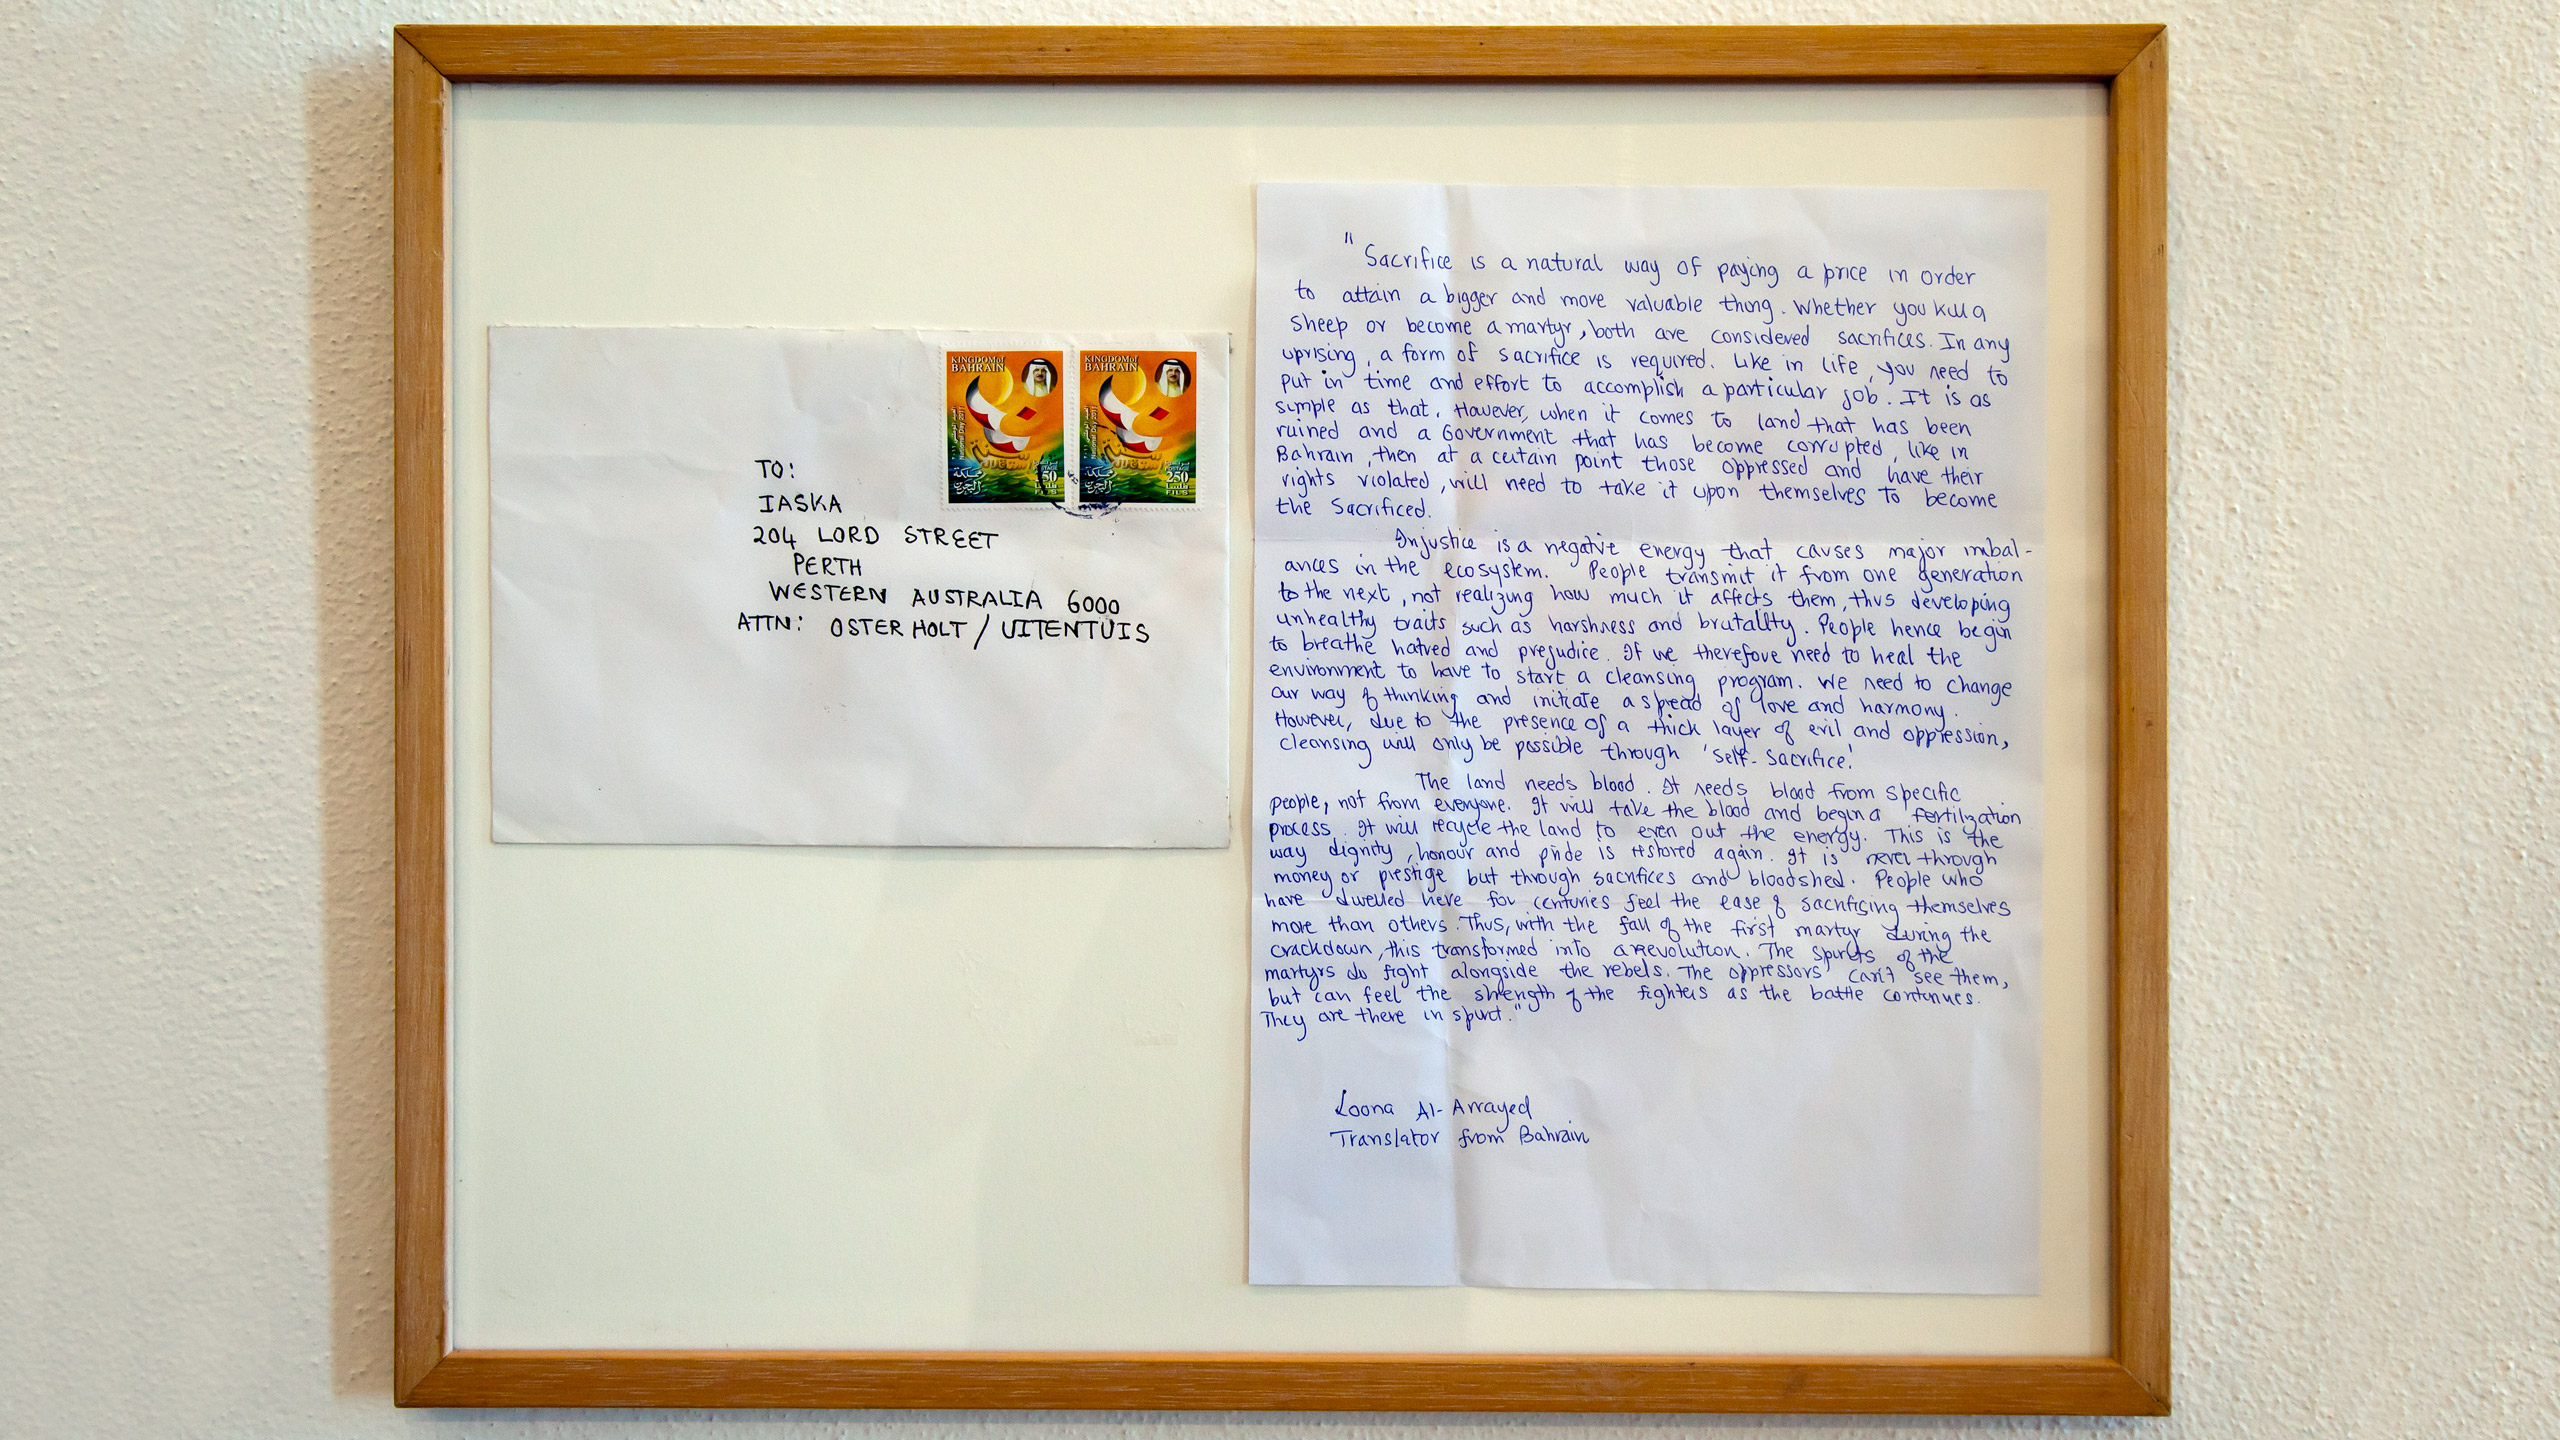 KINGDOM of
BAHRAIN
National Day 2011
50
POSTAGE
FILS
KINGDOM of
BAHRAIN
National Day 2011
POSTAGE
250
FILS
TO:
IASKA
204 LORD STREET
PERTH
WESTERN AUSTRALIA 6000
ATTN: OSTER HOLT / UITENTUIS
"Sacrifice is a natural way of paying a price in order
to attain a bigger and more valuable thing. Whether you kill a
sheep or become a martyr, both are considered sacrifices. In any
uprising, a form of sacrifice is required. Like in life, you need to
put in time and effort to accomplish a particular job. It is as
simple as that. However, when it comes to land that has been
ruined and a Government that has become corrupted, like in
Bahrain, then at a certain point those oppressed and have their
rights violated, will need to take it upon themselves to become
the Sacrificed.
Injustice is a negative energy that causes major imbal-
ances in the ecosystem. People transmit it from one generation
to the next, not realizing how much it affects them, thus developing
unhealthy traits such as harshness and brutality. People hence begin
to breathe hatred and prejudice. If we therefore need to heal the
environment to have to start a cleansing program. We need to change
our way of thinking and initiate a spread of love and harmony.
However, due to the presence of a thick layer of evil and oppression,
cleansing will only be possible through 'self-sacrifice.'
The land needs blood. It needs blood from specific
people, not from everyone. It will take the blood and begin a fertilization
process. It will recycle the land to even out the energy. This is the
way dignity, honour and pride is restored again. It is never through
money or prestige but through sacrifices and bloodshed. People who
have dwelled here for centuries feel the ease of sacrificing themselves
more than others. Thus, with the fall of the first martyr during the
crackdown, this transformed into a revolution. The spirits of the
martyrs do fight alongside the rebels. The oppressors can't see them,
but can feel the strength of the fighters as the battle continues.
They are there in spirit."
Loona Al-Arrayed
Translator from Bahrain